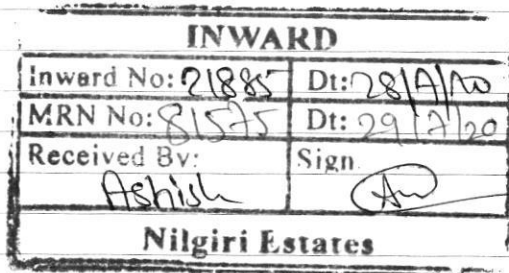 INWARD
Inward No: 21885 Dt: 28/7/20
MRN No: 81575 Dt: 29/7/20
Received By: Sign.
Ashish
Nilgiri Estates